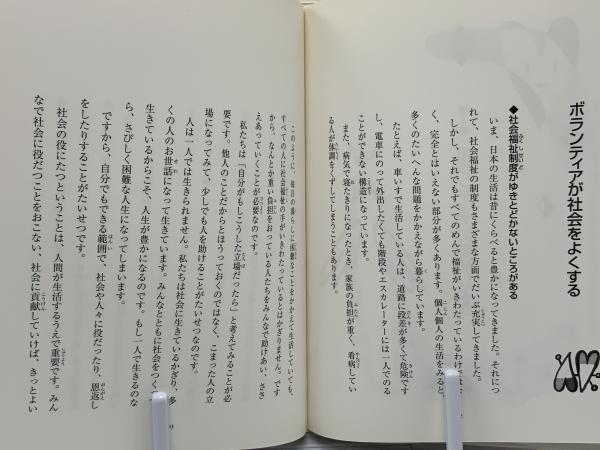 ボランティアが社会をよくする
◆社会福祉制度がゆきとどかないところがある
いま、日本の生活は昔にくらべると豊かになってきました。それにつ
れて、社会福祉の制度もさまざまな方面でだいぶ充実してきました。
しかし、それでもすべてのめんで福祉がいきわたっているわけでは
く、完全とはいえない部分が多くあります。個人個人の生活をみると、
多くのたいへんな問題をかかえながら暮らしています。
たとえば、車いすで生活している人は、道路に段差が多くて危険です
し、電車にのって外出したくても階段やエスカレーターには一人でのる
ことができない構造になっています。
また、病気で寝たきりになったとき、家族の負担が重く、看病してい
る人が体調をくずしてしまうこともあります。
このように、毎日の暮らしに困難なことをかかえて生活していても、
すべての人に社会福祉の手がいきわたっているとはかぎりません。です
から、なんとか重い負担をおっている人たちをみんなで助けあい、ささ
えあっていくことが必要なのです。
私たちは「自分がもしこうした立場だったら」と考えてみることが必
要です。他人のことだからとほうっておくのではなく、こまった人の立
場になってみて、少しでも人を助けることがたいせつなのです。
人は一人では生きられません。私たちは社会に生きているかぎり、多
くの人のお世話になって生きています。みんなとともに社会をつく
生きているからこそ、人生が豊かになるのです。もし一人で生きるのな
ら、さびしく困難な人生になってしまいます。
ですから、自分でもできる範囲で、社会や人々に役だったり、恩返し
をしたりすることがたいせつです。
社会の役にたつということは、人間が生活するうえで重要です。みん
なで社会に役だつことをおこない、社会に貢献していけば、きっとよい